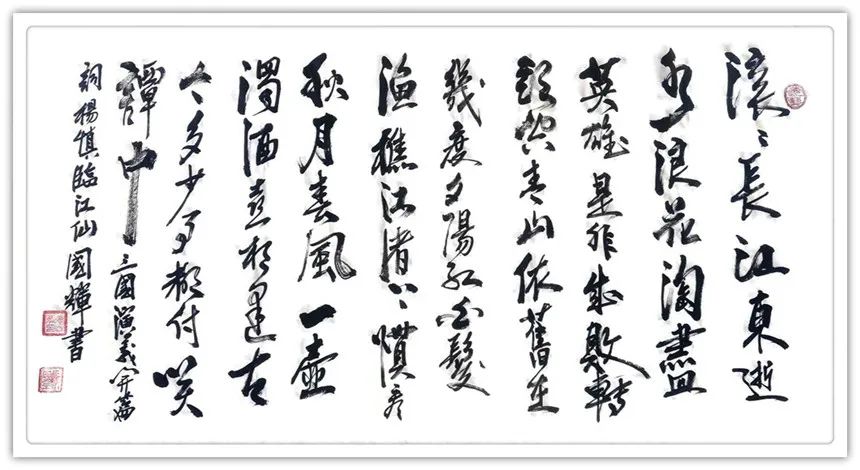 滚〻長江東逝
水浪花淘盡
英雄是非成敗轉
頭空青山依舊在
幾度夕陽紅白髮
漁樵江渚上慣看
秋月春風一壺
濁酒喜相逢古
今多少事都付笑
譚中 三國演義開篇
詞楊慎臨江仙國輝書